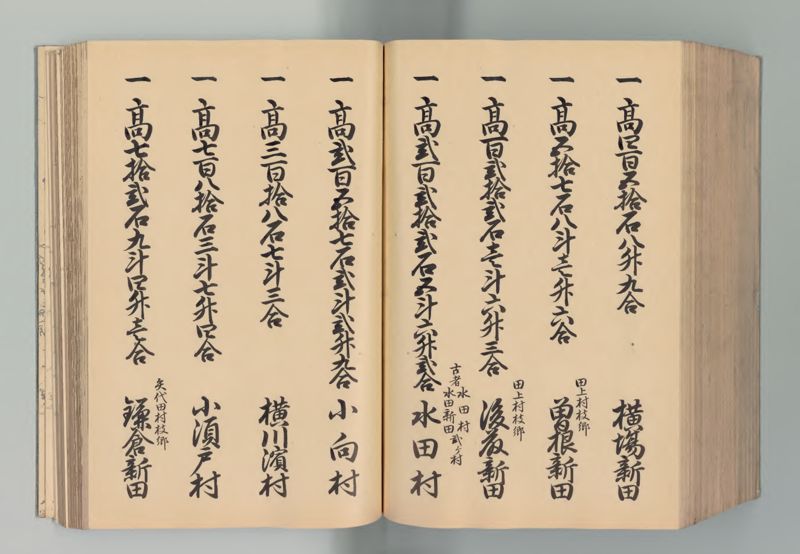 一高四百五拾石八升九合 横場新田
一高五拾七石八斗壱升六合 田上村枝郷 曽根新田
一高百弐拾弐石壱斗六升三合 田上村枝郷 後藤新田
一高弐百弐拾弐石五斗六升弐合 古者水田村水田新田弐ケ村 水田村
一高弐百五拾七石弐斗弐升九合 小向村
一高三百拾八石七斗三合 横川濱村
一高七百八拾石三斗七升四合 小須戸村
一高七拾弐石九斗四升壱合 矢代田村枝郷 鎌倉新田